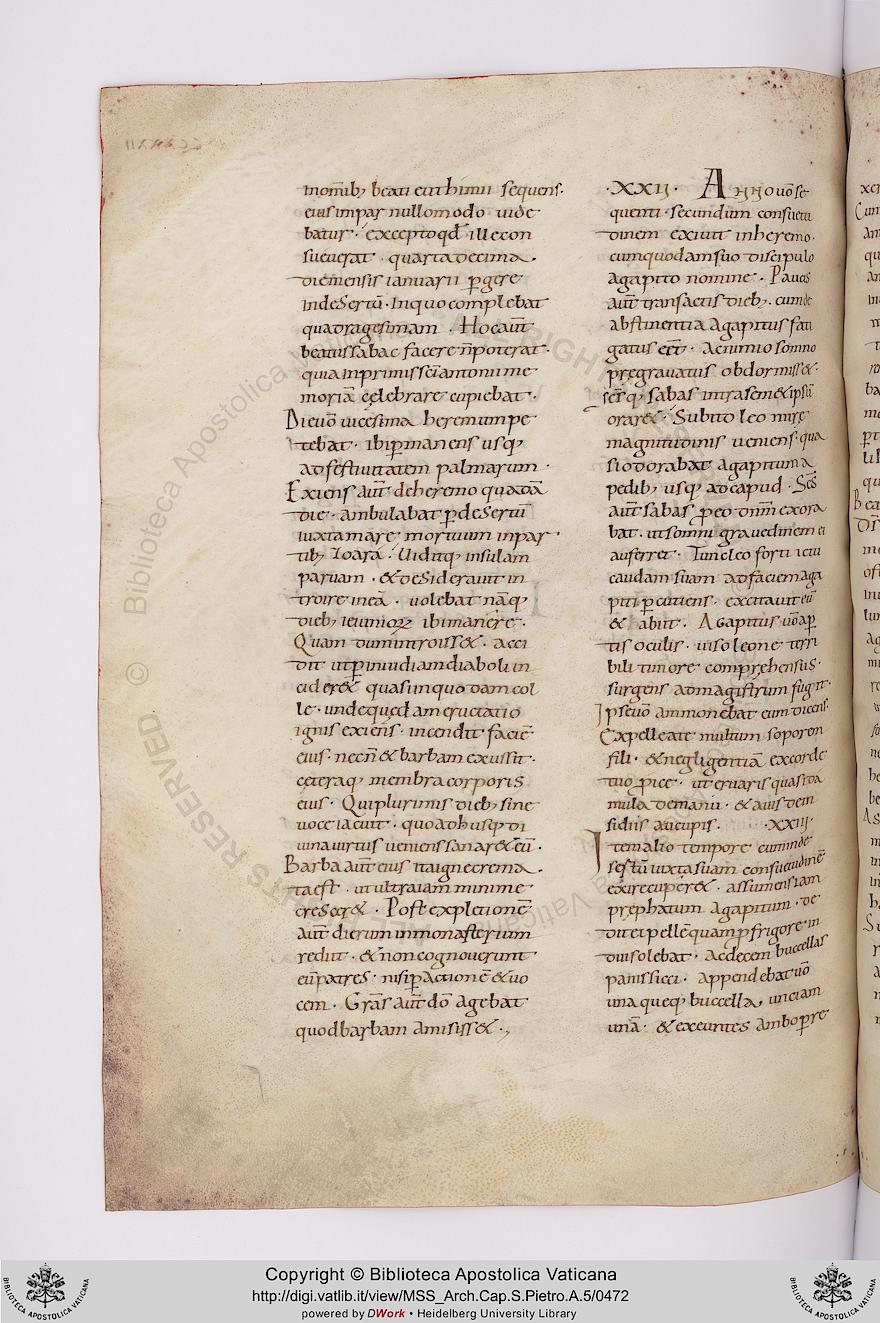 inomīb; beati euthimii sequens.
eius impar nullomodo uide
batur. exceptoqđ ille con
sueuerat. quartadecima.
diemensis ianuarii pgere
indesertū. Inquo complebat
quadragesimam. Hocaūt
beatussabas facere n̄poterat.
quia inprimis sc̄iantonii me
moriā celebrare cupiebat.
Dieuō uicesima heremum pe
tebat. ibi pmanens usq;
adfestiuitatem palmarum.
Exiens aūt deheremo quadā
die. ambulabat pdesertū
iuxta mare mortuum inpar
tib; Ioara. Uiditq; insulam
paruam. &desiderauit in
troire ineā. uolebat nāq;
dieb; ieiunioꝝ ibi manere.
Quam dum introiss&. acci
dit ut pinuidiam diaboli in
cider& quasi inquodam col
le. unde quędam eructatio
ignis exiens. incendit faciē
eius. necn̄ & barbam exussit.
ceteraq; membra corporis
eius. Qui plurimis dieb; sine
uoce iacuit. quoadhusq; di
uina uirtus ueniens sanar& eū.
Barba aūt eius ita igne crema
ta est. ut ultra iam minime
crescer&. Post expletionē
aūt dierum in monasterium
rediit. & non cognouerunt
eūpatres. nisi pactionē & uo
cem. Grās aūt dō agebat
quod barbam amisiss&.,
.XXII. Anno uō se
quenti. secundum consuetu
dinem exiuit inheremo.
cumquodam suo discipulo
agapito nomine. Paucis
aūt transactis dieb;. cumde
abstinentia Agapitus fati
gatus eēt. Acnimio somno
pręgrauatus obdormiss&.
sc̄sq; sabas intrasem&ipsū
orar&. Subito leo mirę
magnitudinis ueniens. qua
si odorabat agapitum a
pedib; usq; ad capud. Sc̄s
aūt sabas peo dn̄m exora
bat. ut somni grauedinem ei
auferret. Tunc leo forti ictu
caudam suam adfaciem aga
piti pcutiens. excitauit eū
& abiit. Agapitus uō ap
tis oculis. uiso leone terri
bili timore comprehensus.
surgens admagistrum fugiit.
Ipse uō ammonebat eum dicens.
Expelle a te multum soporem
fili. & negligentiā excorde
tuo pice. ut eruaris quasi da
mula demanu. & auis dein
sidiis aucupis. .XXIII.
Item alio tempore cuminde
sertū iuxta suam consuetudinē
exirecuper&. assumens iam
prephatum Agapitum. de
dit ei pellē quam pfrigore in
dui solebat. Acdecem buccellas
panis sicci. appendebat uō
una queq; buccella, unciam
unā. & exeuntes ambo pre
Copyright © Biblioteca Apostolica Vaticana
http://digi.vatlib.it/view/MSS_Arch.Cap.S.Pietro.A.5/0472
powered by DWork • Heidelberg University Library